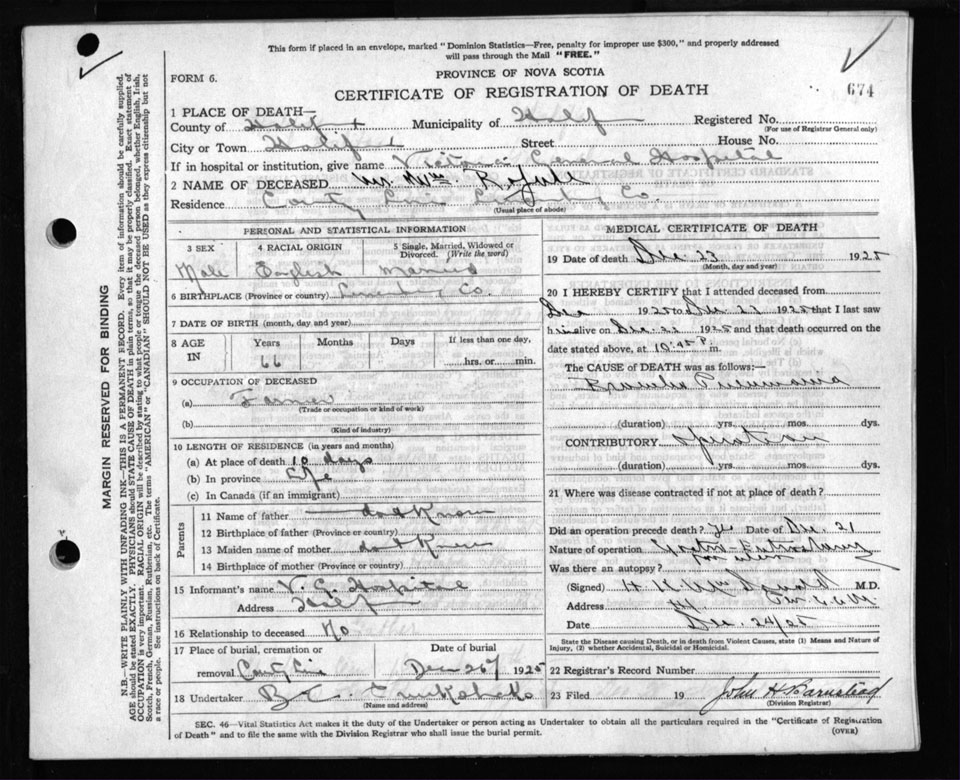 This form if placed in an envelope, marked "Dominion Statistics—Free, penalty for improper use $300," and properly addressed
will pass through the Mail "FREE."
FORM 6.
PROVINCE OF NOVA SCOTIA
CERTIFICATE OF REGISTRATION OF DEATH
674
1 PLACE OF DEATH—
County of Halifax Municipality of Halifax Registered No.
(For use of Registrar General only)
City or Town Halifax Street House No.
If in hospital or institution, give name Victoria General Hospital
2 NAME OF DECEASED Mr. Wm.
Residence County Line Co.
(Usual place of abode)
PERSONAL AND STATISTICAL INFORMATION
3 SEX 4 RACIAL ORIGIN 5 Single, Married, Widowed or
Divorced. (Write the word)
Male English Married
6 BIRTHPLACE (Province or country) Co.
7 DATE OF BIRTH (month, day and year)
8 AGE IN Years Months Days If less than one day,
66 hrs. or min.
9 OCCUPATION OF DECEASED
(a) Farmer
(Trade or occupation or kind of work)
(b)
(Kind of industry)
10 LENGTH OF RESIDENCE (in years and months)
(a) At place of death 10 days
(b) In province Life
(c) In Canada (if an immigrant)
Parents
11 Name of father dont Know
12 Birthplace of father (Province or country)
13 Maiden name of mother dont Know
14 Birthplace of mother (Province or country)
15 Informant's name V. G. Hospital
Address Halifax
16 Relationship to deceased No
17 Place of burial, cremation or Date of burial
removal Dec 25 1925
18 Undertaker
(Name and address)
MEDICAL CERTIFICATE OF DEATH
19 Date of death Dec. 23 1925
(Month, day and year)
20 I HEREBY CERTIFY that I attended deceased from
Dec 1925 to Dec 23 1925 that I last saw
him alive on Dec. 1925 and that death occurred on
date stated above, at 10:45 P. m.
The CAUSE OF DEATH was as follows:—
Broncho Pneumonia
(duration) yrs. mos. dys.
CONTRIBUTORY Operation
(duration) yrs. mos. dys.
21 Where was disease contracted if not at place of death?
Did an operation precede death? Yes Date of Dec. 21
Nature of operation Gastro-Enterostomy
for ulcer
Was there an autopsy?
(Signed) H. K. M.D.
Address
Date Dec. 24/25
State the Disease causing Death, or in death from Violent Causes, state (1) Means and Nature of
Injury, (2) whether Accidental, Suicidal or Homicidal.
22 Registrar's Record Number
23 Filed 19 John H Barnstead
(Division Registrar)
SEC. 46—Vital Statistics Act makes it the duty of the Undertaker or person acting as Undertaker to obtain all the particulars required in the "Certificate of Registration
of Death" and to file the same with the Division Registrar who shall issue the burial permit.
(OVER)
MARGIN RESERVED FOR BINDING
N.B.—WRITE PLAINLY WITH UNFADING INK—THIS IS A PERMANENT RECORD. Every item of information should be carefully supplied.
AGE should be stated EXACTLY. PHYSICIANS should STATE CAUSE OF DEATH in plain terms, so that it may be properly classified. Exact statement of
OCCUPATION is very important. RACIAL ORIGIN will be described by stating to what people or tongue the deceased person belonged, whether English, Irish,
Scotch, French, German, Russian, Ruthenian, etc. The terms "AMERICAN" or "CANADIAN" SHOULD NOT BE USED as they express citizenship but not
a race or people. See instructions on back of Certificate.